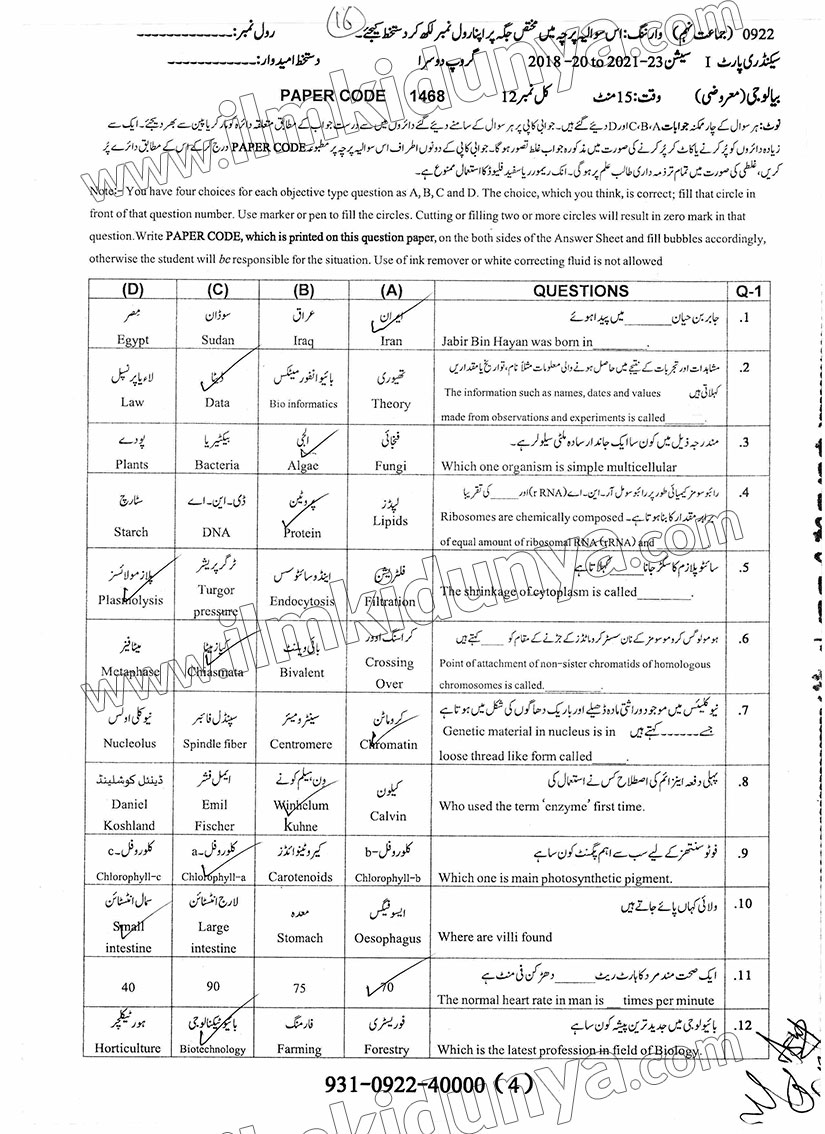 16
0922 (جماعت نہم) وارننگ: اس سوالیہ پرچہ میں مختص جگہ پر اپنا رول نمبر لکھ کر دستخط کیجئے۔ رول نمبر:
سیکنڈری پارٹ I سیشن 2018-20 to 2021-23 گروپ دوسرا دستخط امیدوار:
بیالوجی (معروضی) وقت: 15 منٹ کل نمبر 12 PAPER CODE 1468
نوٹ: ہر سوال کے چار ممکنہ جوابات A، B، C اور D دیئے گئے ہیں۔ جوابی کاپی پر ہر سوال کے سامنے دیئے گئے دائروں میں سے درست جواب کے مطابق متعلقہ دائرہ کو مارکر یا پین سے بھر دیجئے۔ ایک سے
زیادہ دائروں کو پُر کرنے یا کاٹ کر پُر کرنے کی صورت میں مذکورہ جواب غلط تصور ہوگا۔ جوابی کاپی کے دونوں اطراف اس سوالیہ پرچہ پر مطبوعہ PAPER CODE درج کر کے اس کے مطابق دائرے پُر
کریں، غلطی کی صورت میں تمام تر ذمہ داری طالب علم پر ہوگی۔ انک ریمور یا سفید فلیوڈ کا استعمال ممنوع ہے۔
Note:- You have four choices for each objective type question as A, B, C and D. The choice, which you think, is correct; fill that circle in
front of that question number. Use marker or pen to fill the circles. Cutting or filling two or more circles will result in zero mark in that
question.Write PAPER CODE, which is printed on this question paper, on the both sides of the Answer Sheet and fill bubbles accordingly,
otherwise the student will be responsible for the situation. Use of ink remover or white correcting fluid is not allowed
(D) (C) (B) (A) QUESTIONS Q-1
مصر سوڈان عراق ایران جابر بن حیان ______ میں پیدا ہوئے .1
Egypt Sudan Iraq Iran Jabir Bin Hayan was born in ______.
لاء یا پرنسپل ڈیٹا بائیو انفورمیٹکس تھیوری مشاہدات اور تجربات کے نتیجے میں حاصل ہونے والی معلومات مثلاً نام، تواریخ یا مقداریں .2
The information such as names, dates and values کہلاتی ہیں
Law Data Bio informatics Theory made from observations and experiments is called______.
پودے بیکٹیریا الجی فنجائی مندرجہ ذیل میں کون سا ایک جاندار سادہ ملٹی سیلولر ہے۔ .3
Plants Bacteria Algae Fungi Which one organism is simple multicellular
سٹارچ ڈی۔این۔اے پروٹین لپڈز رائبوسومز کیمیائی طور پر رائبوسومل آر۔این۔اے (rRNA) اور ____ کی تقریباً .4
برابر مقدار کا بنا ہوتا ہے۔ Ribosomes are chemically composed
Starch DNA Protein Lipids of equal amount of ribosomal RNA (rRNA) and
پلازمولائسز ٹرگر پریشر اینڈوسائٹوسس فلٹریشن سائٹوپلازم کا سکڑ جانا ______ کہلاتا ہے .5
Plasmolysis Turgor pressure Endocytosis Filtration The shrinkage of cytoplasm is called______.
میٹافیز کیازمیٹا بائی ویلنٹ کراسنگ اوور ہومولوگس کروموسومز کے نان سسٹر کروماٹڈز کے جڑنے کے مقام کو ____ کہتے ہیں .6
Metaphase Chiasmata Bivalent Crossing Over Point of attachment of non-sister chromatids of homologous
chromosomes is called.______
نیوکلی اولس سپنڈل فائبر سینٹرومیئر کروماٹن نیوکلیئس میں موجود وراثتی مادہ ڈھیلے اور باریک دھاگوں کی شکل میں ہوتا ہے .7
Genetic material in nucleus is in جسے ------ کہتے ہیں
Nucleolus Spindle fiber Centromere Chromatin loose thread like form called ____.
ڈینئل کوشلینڈ ایمل فشر ون ہیلم کوہنے کیلون پہلی دفعہ اینزائم کی اصطلاح کس نے استعمال کی .8
Daniel Koshland Emil Fischer Winhelum kuhne Calvin Who used the term 'enzyme' first time.
کلوروفل-c کلوروفل-a کیروٹینوائڈز کلوروفل-b فوٹوسنتھیسز کے لیے سب سے اہم پگمنٹ کون سا ہے .9
Chlorophyll-c Chlorophyll-a Carotenoids Chlorophyll-b Which one is main photosynthetic pigment.
سمال انٹسٹائن لارج انٹسٹائن معدہ ایسوفیگس ولائی کہاں پائے جاتے ہیں .10
Small intestine Large intestine Stomach Oesophagus Where are villi found
40 90 75 70 ایک صحت مند مرد کا ہارٹ ریٹ ______ دھڑکن فی منٹ ہے .11
The normal heart rate in man is __ times per minute
ہورٹیکلچر بائیوٹیکنالوجی فارمنگ فوریسٹری بائیولوجی میں جدید ترین پیشہ کون سا ہے .12
Horticulture Biotechnology Farming Forestry Which is the latest profession in field of Biology.
931-0922-40000 (4)
www.ilmkidunya.com
www.ilmkidunya.com
www.ilmkidunya.com